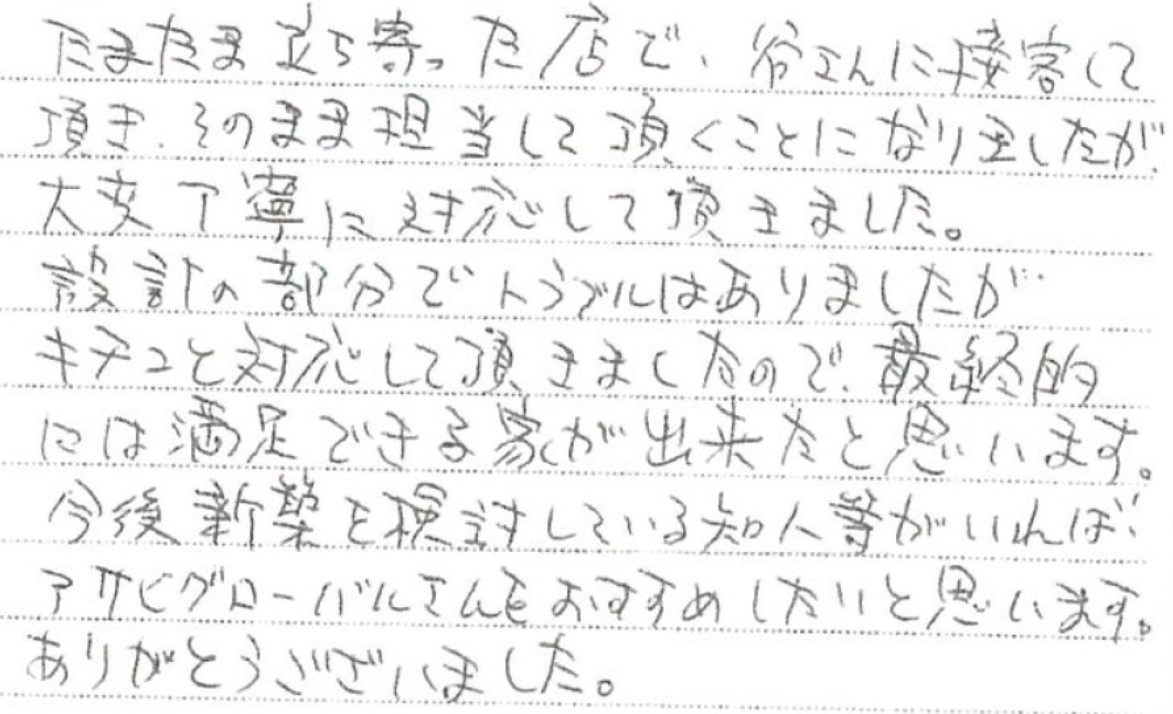 たまたま立ち寄った店で、谷さんに接客して
頂き、そのまま担当して頂くことになりましたが、
大変丁寧に対応して頂きました。
設計の部分でトラブルはありましたが
キチンと対応して頂きましたので、最終的
には満足できる家が出来たと思います。
今後新築を検討している知人等がいれば、
アサヒグローバルさんをおすすめしたいと思います。
ありがとうございました。